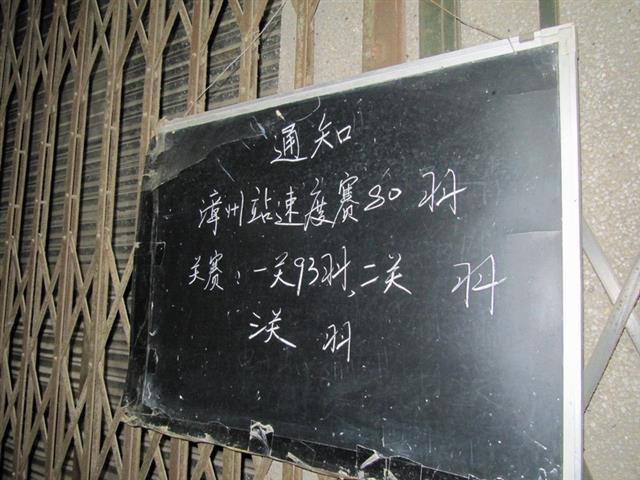 通知
漳州站速度赛80羽
关赛:一关93羽、二关 羽
三关 羽